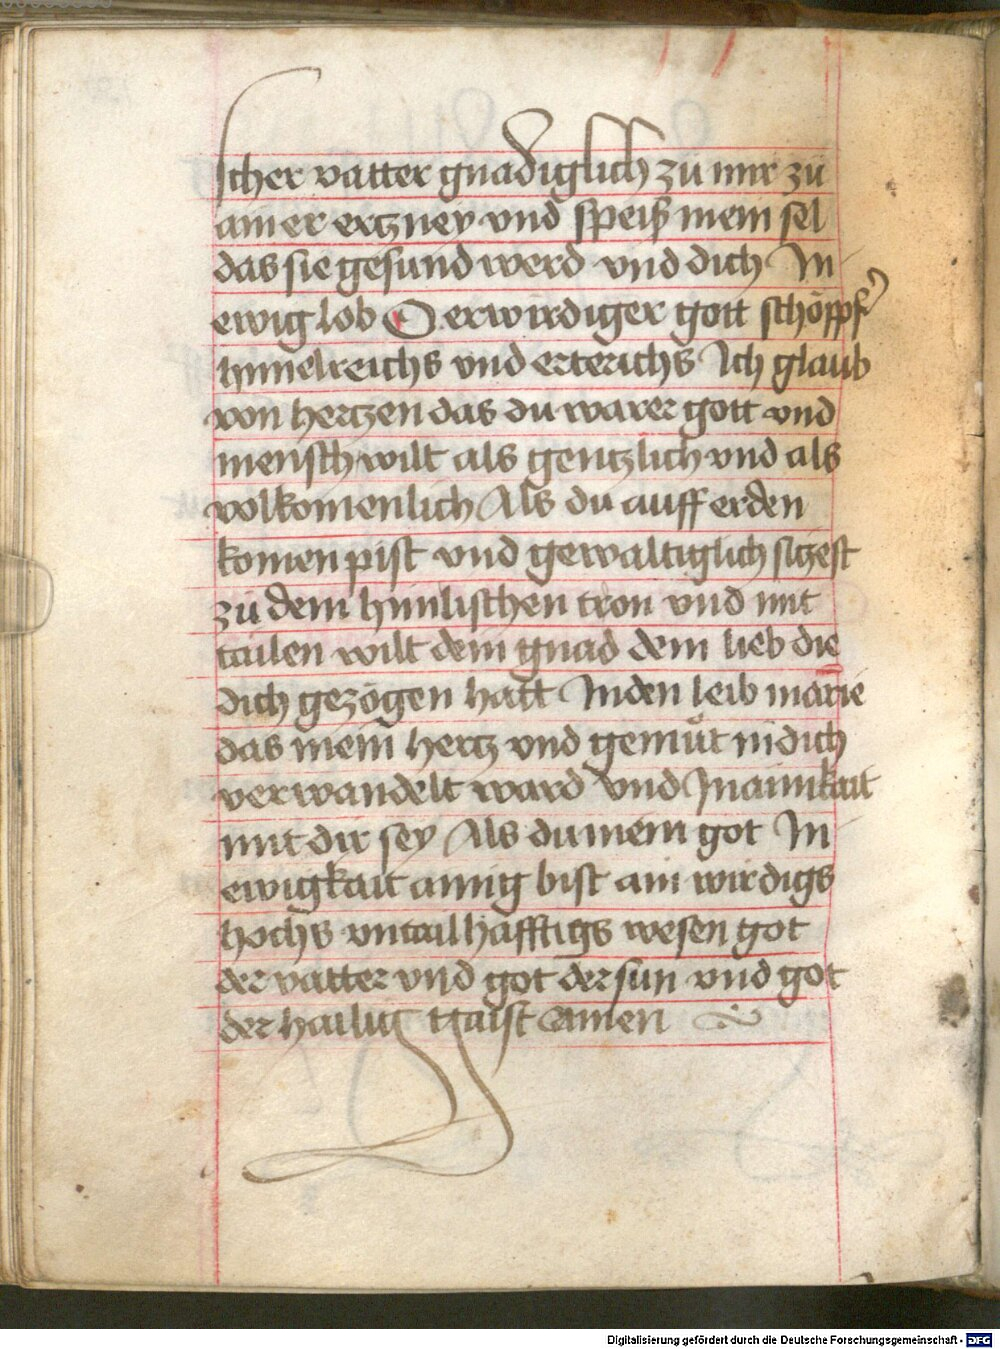 scher vatter gnadiglich zů mir zů
ainer ertzney vnd speiß mein sel
das sie gesund werd vnd dich In
ewig lob O erwirdiger gott schöpff'
himelreichs vnd erterichs Ich glaub
von hertzen das du warer gott vnd
mensch wilt als gentzlich vnd als
volkomenlich Als du auff erden
komen pist vnd gewaltiglich sitzest
zů dem himlischen tron vnd mit
tailen wilt dein gnad dem lieb die
dich gezogen hatt In den leib marie
das mein hertz vnd gemůt in dich
verwandelt ward vnd In ainikait
mit dir sey Als du mein got In
ewigkait ainig bist ain wirdigs
hochs vntailhafftigs wesen got
der vatter vnd got der sun vnd got
der hailig gaist Amen
Digitalisierung gefördert durch die Deutsche Forschungsgemeinschaft - DFG